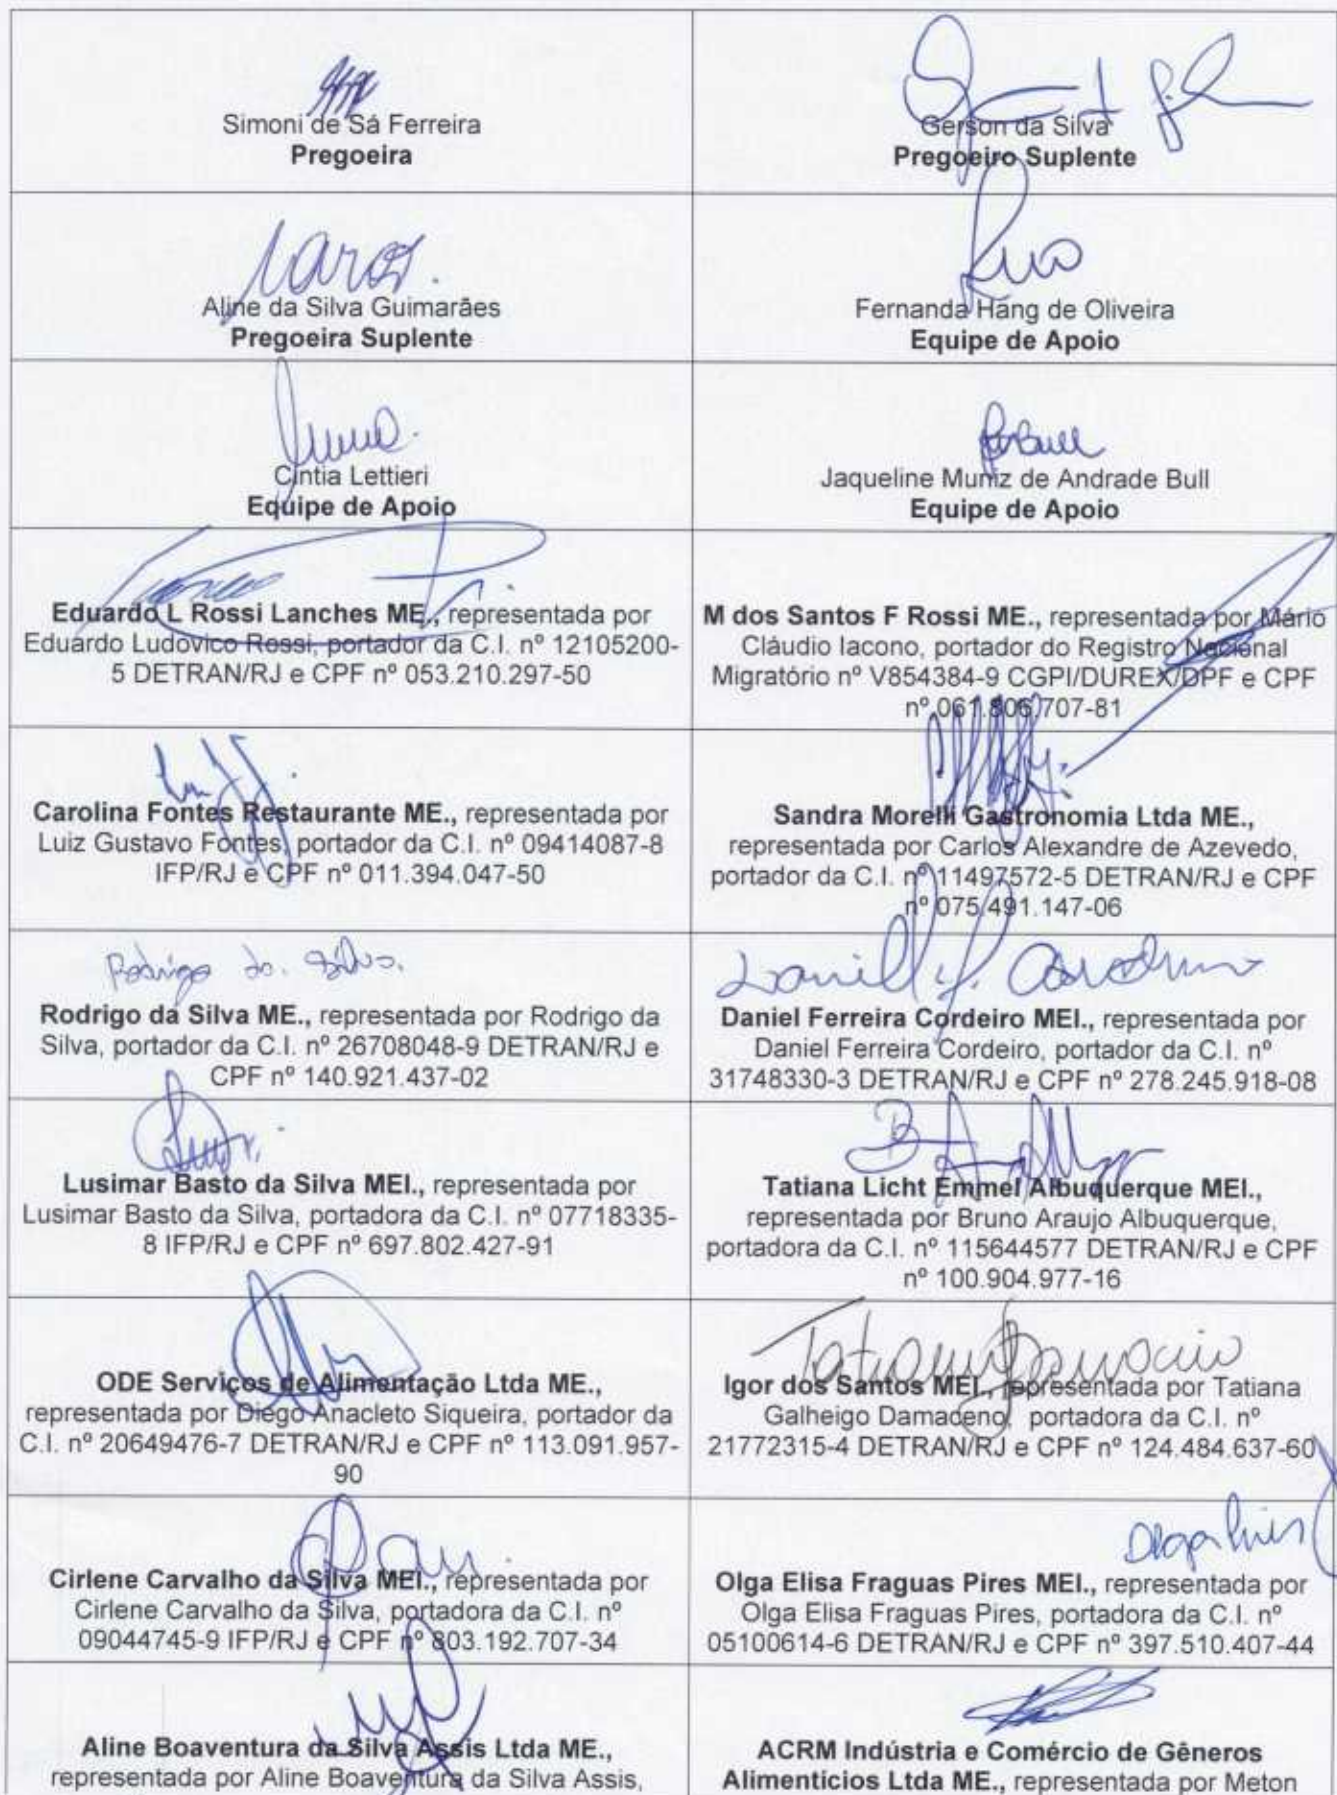 Simoni de Sá Ferreira
Pregoeira
Gerson da Silva
Pregoeiro Suplente
Aline da Silva Guimarães
Pregoeira Suplente
Fernanda Hang de Oliveira
Equipe de Apoio
Cíntia Lettieri
Equipe de Apoio
Jaqueline Muniz de Andrade Bull
Equipe de Apoio
Eduardo L Rossi Lanches ME., representada por
Eduardo Ludovico Rossi, portador da C.I. nº 12105200-
5 DETRAN/RJ e CPF nº 053.210.297-50
M dos Santos F Rossi ME., representada por Mário
Cláudio Iacono, portador do Registro Nacional
Migratório nº V854384-9 CGPI/DUREX/DPF e CPF
nº 061.806.707-81
Carolina Fontes Restaurante ME., representada por
Luiz Gustavo Fontes, portador da C.I. nº 09414087-8
IFP/RJ e CPF nº 011.394.047-50
Sandra Morelli Gastronomia Ltda ME.,
representada por Carlos Alexandre de Azevedo,
portador da C.I. nº 11497572-5 DETRAN/RJ e CPF
nº 075.491.147-06
Rodrigo da Silva.
Rodrigo da Silva ME., representada por Rodrigo da
Silva, portador da C.I. nº 26708048-9 DETRAN/RJ e
CPF nº 140.921.437-02
Daniel Ferreira Cordeiro MEI., representada por
Daniel Ferreira Cordeiro, portador da C.I. nº
31748330-3 DETRAN/RJ e CPF nº 278.245.918-08
Lusimar Basto da Silva MEI., representada por
Lusimar Basto da Silva, portadora da C.I. nº 07718335-
8 IFP/RJ e CPF nº 697.802.427-91
Tatiana Licht Emmel Albuquerque MEI.,
representada por Bruno Araujo Albuquerque,
portadora da C.I. nº 115644577 DETRAN/RJ e CPF
nº 100.904.977-16
ODE Serviços de Alimentação Ltda ME.,
representada por Diego Anacleto Siqueira, portador da
C.I. nº 20649476-7 DETRAN/RJ e CPF nº 113.091.957-
90
Igor dos Santos MEI., representada por Tatiana
Galheigo Damaceno, portadora da C.I. nº
21772315-4 DETRAN/RJ e CPF nº 124.484.637-60
Cirlene Carvalho da Silva MEI., representada por
Cirlene Carvalho da Silva, portadora da C.I. nº
09044745-9 IFP/RJ e CPF nº 803.192.707-34
Olga Elisa Fraguas Pires MEI., representada por
Olga Elisa Fraguas Pires, portadora da C.I. nº
05100614-6 DETRAN/RJ e CPF nº 397.510.407-44
Aline Boaventura da Silva Assis Ltda ME.,
representada por Aline Boaventura da Silva Assis,
ACRM Indústria e Comércio de Gêneros
Alimentícios Ltda ME., representada por Meton